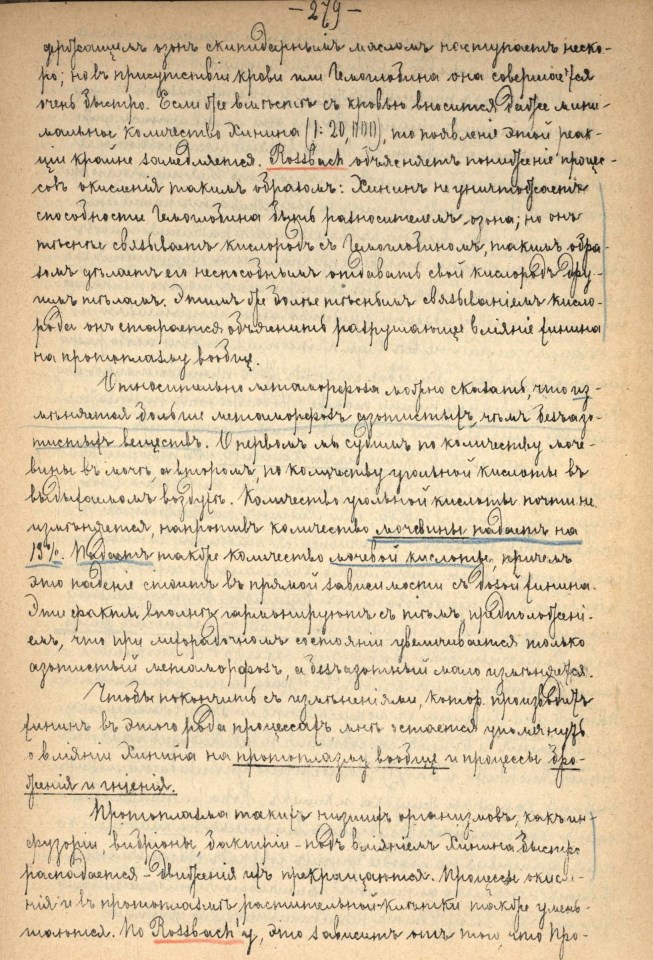 — 279 —
держащимъ озонъ скипидарнымъ масломъ наступаетъ неско-
ро; но въ присутствіи крови или Гемоглобина она совершается
очень быстро. Если же вмѣстѣ съ кровью вносится даже мини-
мальное количество Хинина (1:20,000), то появленіе этой реак-
ціи крайне замедляется. Rossbach объясняетъ пониженіе процес-
совъ окисленія такимъ образомъ: Хининъ не уничтожаетъ
способности Гемоглобина быть разносителемъ озона; но онъ
тѣснѣе связываетъ кислородъ съ Гемоглобиномъ, такимъ обра-
зомъ дѣлаетъ его неспособнымъ отдавать свой кислородъ дру-
гимъ тѣламъ. Этимъ же болѣе тѣснымъ связываніемъ кисло-
рода онъ старается объяснить разрушающее вліяніе хинина
на протоплазму вообще.
Относительно метаморфоза можно сказать, что из-
мѣняется больше метаморфозъ азотистыхъ, чѣмъ безъазо-
тистыхъ веществъ. О первомъ мы судимъ по количеству моче-
вины въ мочѣ, а второмъ, по количеству угольной кислоты въ
выдыхаемомъ воздухѣ. Количество угольной кислоты почти не
измѣняется, напротивъ количество мочевины падаетъ на
19%. Падаетъ также количество мочевой кислоты, причемъ
это паденіе стоитъ въ прямой зависимости съ дозой хинина.
Эти факты вполнѣ гармонируютъ съ тѣмъ предположені-
емъ, что при лихорадочномъ состояніи увеличивается только
азотистый метаморфозъ, а безъазотный мало измѣняется.
Чтобы покончить съ измѣненіями, котор. производитъ
хининъ въ этого рода процессахъ мнѣ остается упомянуть
о вліяніи Хинина на протоплазму вообще и процессы бро-
женія и гніенія.
Протоплазма такихъ низшихъ организмовъ, какъ ин-
фузоріи, вибріоны, бактеріи – подъ вліяніемъ Хинина быстро
распадается – движенія ихъ прекращаются. Процессы окисле-
нія и въ протоплазмѣ растительной клѣтки также умень-
шаются. По Rossbach'у, это зависитъ отъ того, что про-